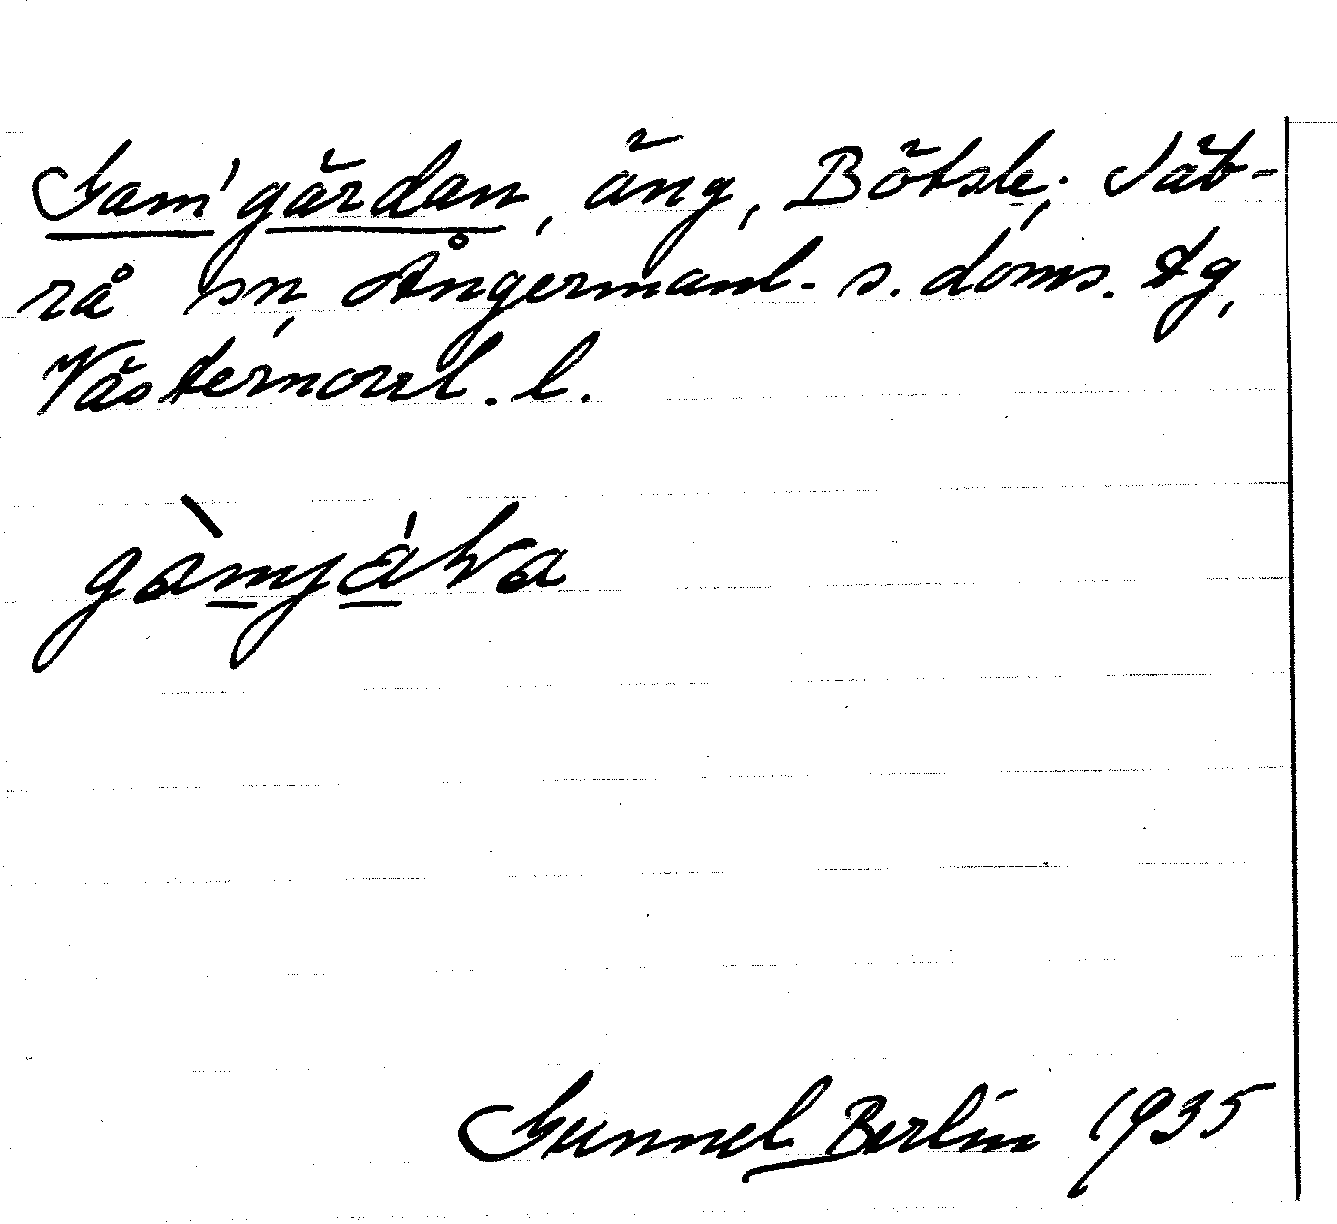 Gam'gärdan, äng, Bötsle; Säb-
rå sn, Ångermanl. s. doms. tg,
Västernorrl. l.
Gunnel Berlin 1935